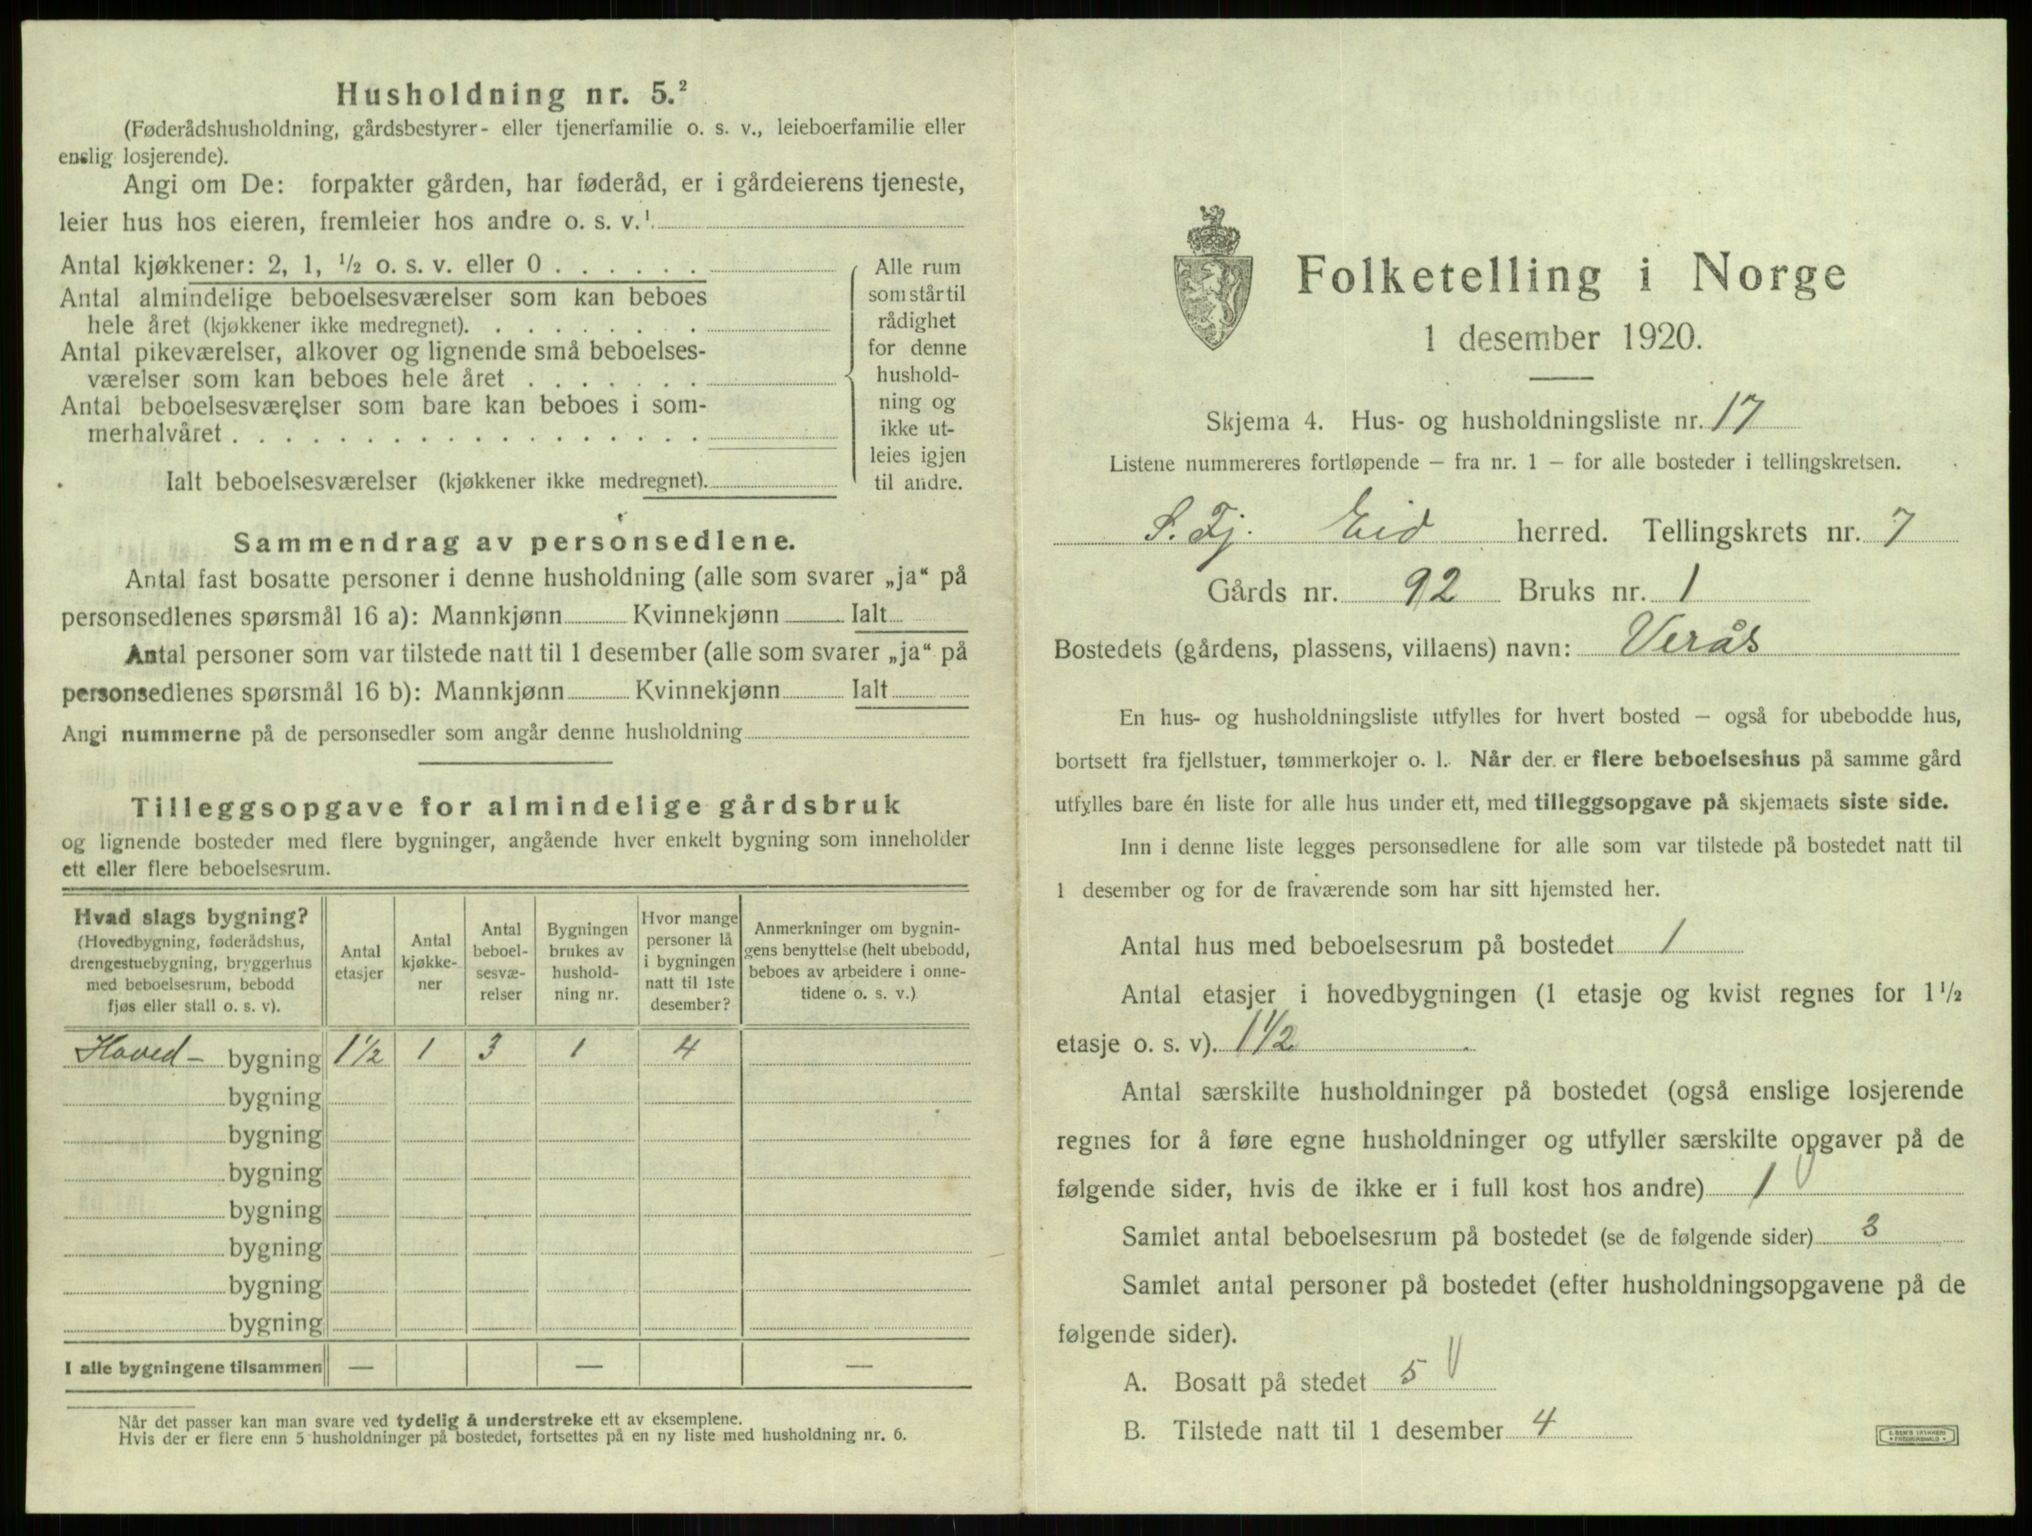 Husholdning nr. 5.²
(Føderådshusholdning, gårdsbestyrer- eller tjenerfamilie o. s. v., leieboerfamilie eller
enslig losjerende).
Angi om De: forpakter gården, har føderåd, er i gårdeierens tjeneste,
leier hus hos eieren, fremleier hos andre o. s. v.¹
Antal kjøkkener: 2, 1, ½ o. s. v. eller 0 . . . . . .
Antal almindelige beboelsesværelser som kan beboes
hele året (kjøkkener ikke medregnet). . . . . . . . .
Antal pikeværelser, alkover og lignende små beboelses-
værelser som kan beboes hele året . . . . . . .
Antal beboelsesværelser som bare kan beboes i som-
merhalvåret . . . . . . . . . . . . . . . . . .
Ialt beboelsesværelser (kjøkkener ikke medregnet).
Alle rum
som står til
rådighet
for denne
hushold-
ning og
ikke ut-
leies igjen
til andre.
Sammendrag av personsedlene.
Antal fast bosatte personer i denne husholdning (alle som svarer „ja“ på
personsedlenes spørsmål 16 a): Mannkjønn Kvinnekjønn Ialt
Antal personer som var tilstede natt til 1 desember (alle som svarer „ja“ på
personsedlenes spørsmål 16 b): Mannkjønn Kvinnekjønn Ialt
Angi nummerne på de personsedler som angår denne husholdning
Tilleggsopgave for almindelige gårdsbruk
og lignende bosteder med flere bygninger, angående hver enkelt bygning som inneholder
ett eller flere beboelsesrum.
Hvad slags bygning?
(Hovedbygning, føderådshus,
drengestuebygning, bryggerhus
med beboelsesrum, bebodd
fjøs eller stall o. s. v).
Antal
etasjer
Antal
kjøkke-
ner
Antal
beboel-
sesvæ-
relser
Bygningen
brukes av
hushold-
ning nr.
Hvor mange
personer lå
i bygningen
natt til 1ste
desember?
Anmerkninger om bygnin-
gens benyttelse (helt ubebodd,
beboes av arbeidere i onne-
tidene o. s. v.)
Hoved- bygning 1½ 1 3 1 4
bygning
bygning
bygning
bygning
bygning
bygning
bygning
I alle bygningene tilsammen — — —
Når det passer kan man svare ved tydelig å understreke ett av eksemplene.
Hvis der er flere enn 5 husholdninger på bostedet, fortsettes på en ny liste med husholdning nr. 6.
Folketelling i Norge
1 desember 1920.
Skjema 4. Hus- og husholdningsliste nr. 17
Listene nummereres fortløpende — fra nr. 1 — for alle bosteder i tellingskretsen.
S. Fj. Eid herred. Tellingskrets nr. 7
Gårds nr. 92 Bruks nr. 1
Bostedets (gårdens, plassens, villaens) navn: Verås
En hus- og husholdningsliste utfylles for hvert bosted — også for ubebodde hus,
bortsett fra fjellstuer, tømmerkojer o. l. Når der er flere beboelseshus på samme gård
utfylles bare én liste for alle hus under ett, med tilleggsopgave på skjemaets siste side.
Inn i denne liste legges personsedlene for alle som var tilstede på bostedet natt til
1 desember og for de fraværende som har sitt hjemsted her.
Antal hus med beboelsesrum på bostedet 1
Antal etasjer i hovedbygningen (1 etasje og kvist regnes for 1½
etasje o. s. v). 1½
Antal særskilte husholdninger på bostedet (også enslige losjerende
regnes for å føre egne husholdninger og utfyller særskilte opgaver på de
følgende sider, hvis de ikke er i full kost hos andre) 1
Samlet antal beboelsesrum på bostedet (se de følgende sider) 3
Samlet antal personer på bostedet (efter husholdningsopgavene på de
følgende sider).
A. Bosatt på stedet 5
B. Tilstede natt til 1 desember 4